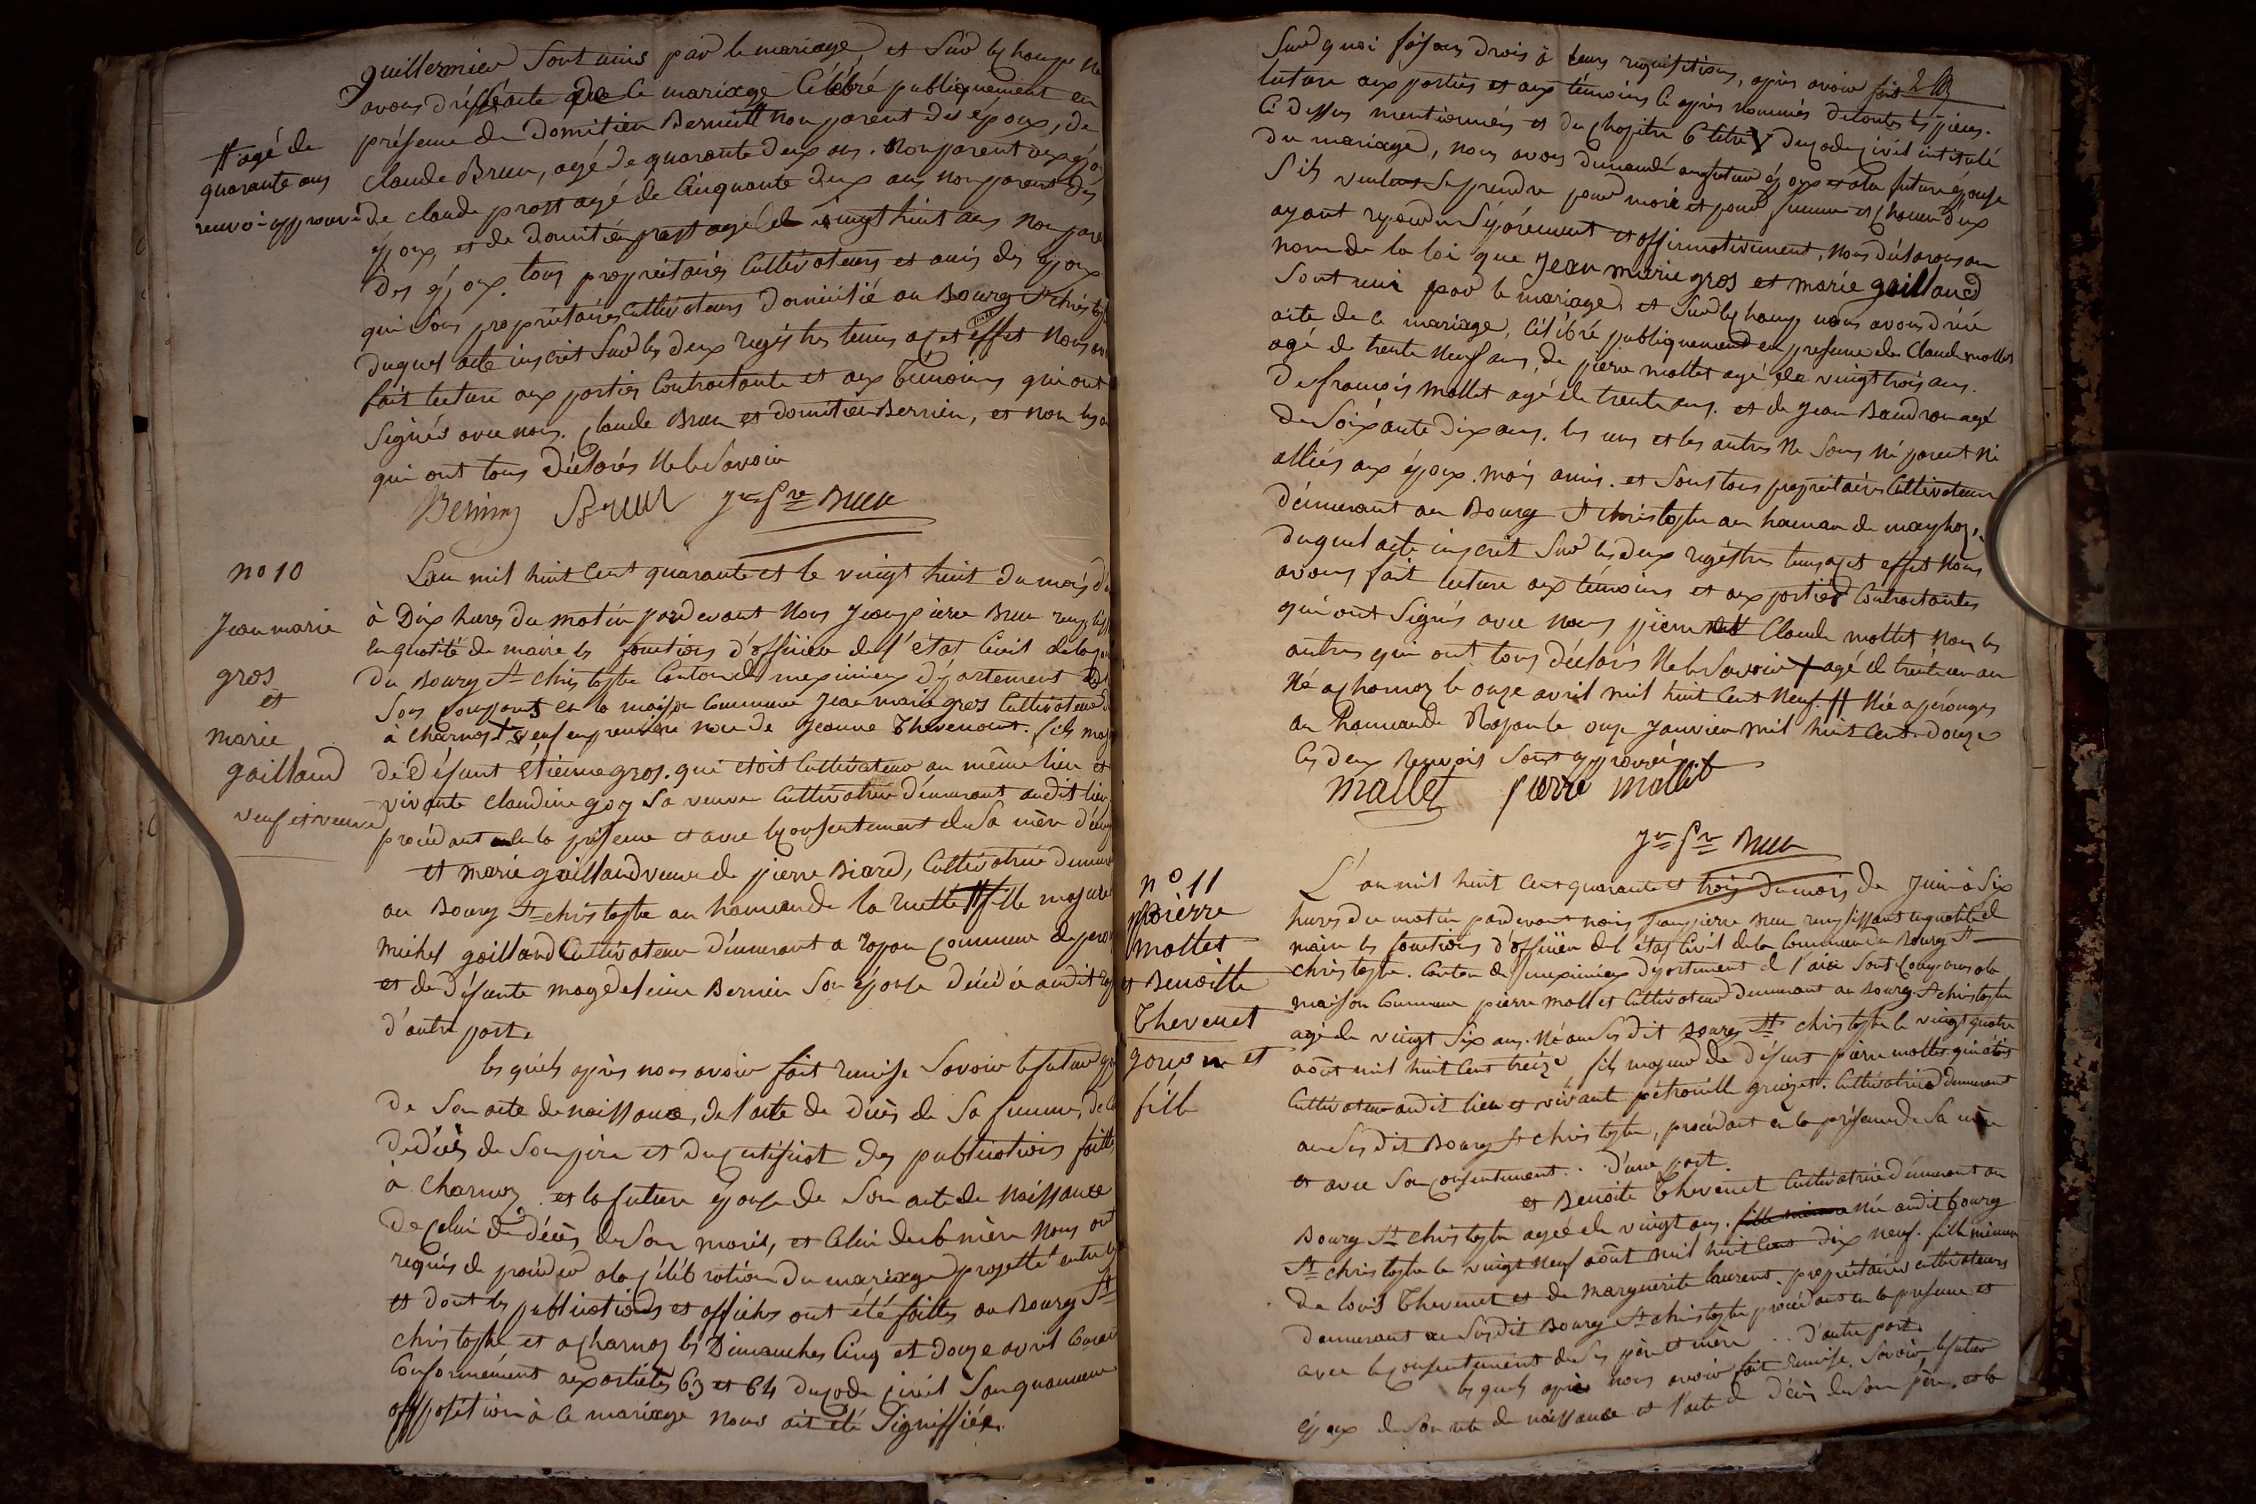 guillermier sont unis par le mariage et sur le champ
avons dressé acte de ce mariage célébré publiquement en
présence de domitien Bernin # non parent des époux, de
claude Brun, agé de quarante deux ans. non parent aux
# agé de
quarante ans
renvoi approuvé
de claude prost agé de cinquante deux ans non parent des
époux, et de domitien prost agé de vingt huit ans non
des époux. tous propriétaires cultivateurs et amis des époux
qui sont propriétaires cultivateurs domicilié au Bourg St christophe
duquel acte inscrit sur les deux registres tenus a cet effet nous
fait lecture aux parties contractante et aux témoins qui ont
signés avec nous. claude Brun et domitien Bernin, et non les
qui ont tous déclarés ne le savoir
Bernin Brun Jn Pre Brun
no 10
Jean marie
gros
et
marie
gaillaud
veuf et veuve
L'an mil huit cent quarante et le vingt huit du mois
à Dix heures du matin pardevant nous Jean pierre Brun
en qualité de maire les fonctions d'officier de l'état civil de la
du Bourg St christophe canton de meximieux département
sont comparus en la maison commune Jean marie gros cultivateur
à charnoz + veuf en première noce de Jeanne Thevenont. fils
de défunt etienne gros. qui etoit cultivateur au même lieu et
vivante claudine goy sa veuve cultivatrice démeurant audit lieu
procédant en la présence et avec le consentement de sa mère
et marie gaillaud veuve de pierre Biard, cultivatrice
au Bourg St christophe au hameau de la ruette # fille majeure
michel gaillaud cultivateur démeurant a rapan commune de
et de défunte magdeleine Bernin son épouse décédée audit
d'autre part.
les quels après nous avoir fait remise savoir le futur
de son acte de naissance, de l'acte de décès de sa femme,
de décès de son père et du certificat des publications faittes
à charnoz. et la future épouse de son acte de naissance
de celui de décès de son maris, et celui de sa mère nous ont
requis de procéder a la célébration du mariage projetté entre
et dont les publications et affiches ont été faittes au Bourg St
christophe et a charnoz les Dimanches cinq et douze avril
conformément aux articles 63 et 64 du code civil sans qu'aucune
opposition à ce mariage nous ait été signiffiée.
sur quoi faisant droit à leurs requisitions, après avoir fait
lecture aux parties et aux témoins ci après nommés de toutes les pièces.
ci dessus mentionnées et du chapitre 6 titre V du code civil intitulé
du mariage, nous avons demandé au futur époux et à la future épouse
s'ils veulent se prendre pour mari et pour femme et chacun d'eux
ayant répondu séparément et affirmativement, nous déclarons au
nom de la loi que Jean marie gros et marie gaillaud
sont unis par le mariage et sur le champ nous avons dréssé
acte de ce mariage, célébré publiquement en presence de Claude mollet
agé de trente neuf ans, de pierre mollet agé de vingt trois ans.
de françois mollet agé de trente ans. et de jean Baudron agé
de soixante dix ans. les uns et les autres ne sont ni parent ni
alliés aux époux. mais amis. et sont tous propriétaires cultivateurs
démeurant au Bourg St christophe au hameau de
duquel acte inscrit sur les deux régistres tenus a cet effet nous
avons fait lecture aux témoins et aux parties contractantes
qui ont signés avec nous pierre et Claude mollet non les
autres qui ont tous déclarés ne le savoir + agé de trente un an
né a charnoz le onze avril mil huit cent neuf. # née a pérouges
au hameau de Rapan le onze janvier mil huit cent douze
les deux renvois sont approuvés
mallet pierre mollet
Jn Pre Brun
no 11
pierre
mollet
et Benoitte
Thevenet
garçon et
fille
L'an mil huit cent quarante et trois du mois de juin à six
heures du matin pardevant nous jean pierre Brun remplissant en qualité de
maire les fonctions d'officier de l'état civil de la commune du Bourg St
christophe. canton de meximieux département de l'ain sont comparus a la
maison commune pierre mollet cultivateur demeurant au Bourg St christophe
agé de vingt six ans. né au susdit Bourg St christophe le vingt quatre
août mil huit cent treize, fils majeur de défunt pierre mollet qui étoit
cultivateur audit lieu et vivante pétronille cultivatrice demeurant
au susdit Bourg St christophe, procédant en la présence de sa mère
et avec son consentement. d'une part.
et Benoite Thevenet cultivatrice démeurant au
Bourg St christophe agée de vingt ans. née audit bourg
St christophe le vingt neuf août mil huit cent dix neuf. fille mineure
de louis Thevenet et de marguerite laurent. propriétaires cultivateurs
demeurant au susdit Bourg St christophe procédant en la presence et
avec le consentement de ses père et mère d'autre part.
les quels après nous avoir fait remise. savoir le futur
époux de son acte de naissance et l'acte de décès de son père, et la